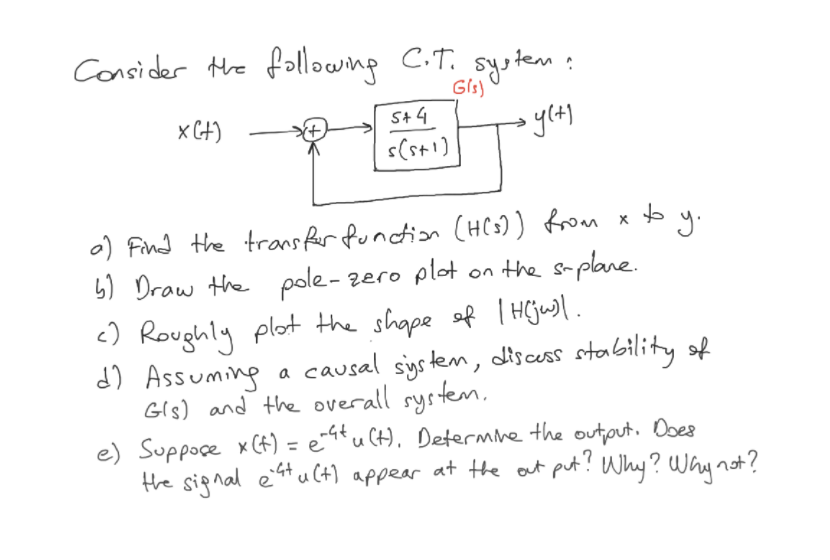 Consider the following C.T. system :
G(s)
x(t) + s+4 / s(s+1) y(t)
a) Find the transfer function (H(s)) from x to y.
b) Draw the pole-zero plot on the s-plane.
c) Roughly plot the shape of |H(jω)|.
d) Assuming a causal system, discuss stability of
G(s) and the overall system.
e) Suppose x(t) = e^-4t u(t). Determine the output. Does
the signal e^-4t u(t) appear at the out put? Why? Why not?